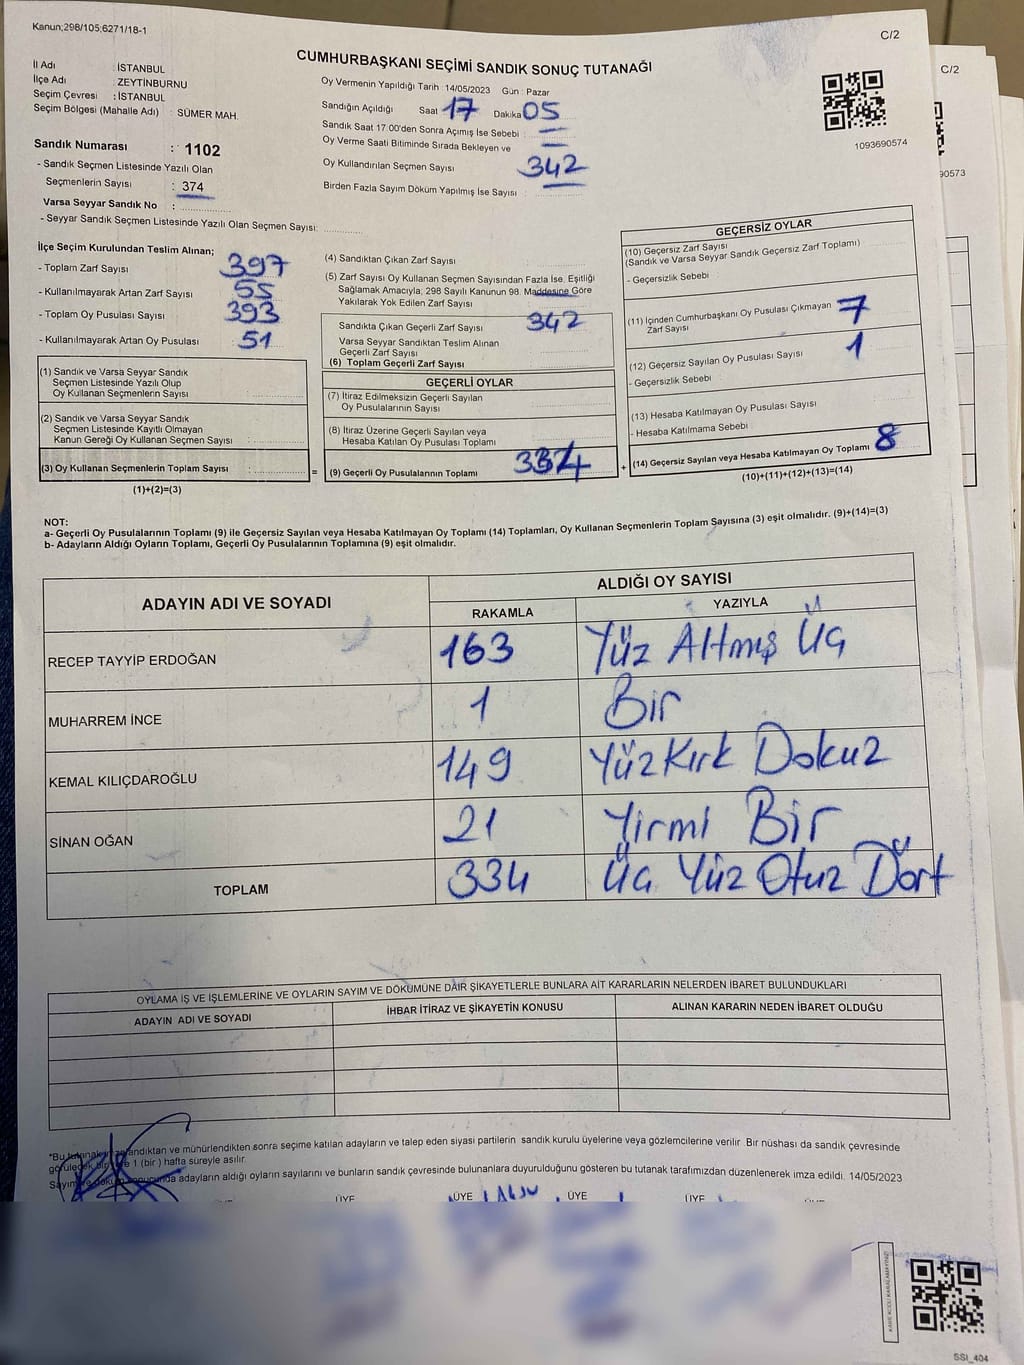 Kanun;298/105;6271/18-1
C/2
C/2
CUMHURBAŞKANI SEÇİMİ SANDIK SONUÇ TUTANAĞI
İl Adı : İSTANBUL
İlçe Adı : ZEYTİNBURNU
Seçim Çevresi : İSTANBUL
Seçim Bölgesi (Mahalle Adı) : SÜMER MAH.
Oy Vermenin Yapıldığı Tarih : 14/05/2023 Gün : Pazar
Sandığın Açıldığı Saat 17 Dakika 05
Sandık Saat 17:00'den Sonra Açılmış İse Sebebi :
Oy Verme Saati Bitiminde Sırada Bekleyen ve
Oy Kullandırılan Seçmen Sayısı 342
Birden Fazla Sayım Döküm Yapılmış İse Sayısı
1093690574
90573
Sandık Numarası : 1102
- Sandık Seçmen Listesinde Yazılı Olan
Seçmenlerin Sayısı : 374
Varsa Seyyar Sandık No :
- Seyyar Sandık Seçmen Listesinde Yazılı Olan Seçmen Sayısı:
İlçe Seçim Kurulundan Teslim Alınan;
- Toplam Zarf Sayısı 397
- Kullanılmayarak Artan Zarf Sayısı 55
- Toplam Oy Pusulası Sayısı 393
- Kullanılmayarak Artan Oy Pusulası 51
(1) Sandık ve Varsa Seyyar Sandık
Seçmen Listesinde Yazılı Olup
Oy Kullanan Seçmenlerin Sayısı
(2) Sandık ve Varsa Seyyar Sandık
Seçmen Listesinde Kayıtlı Olmayan
Kanun Gereği Oy Kullanan Seçmen Sayısı :
(3) Oy Kullanan Seçmenlerin Toplam Sayısı :
(1)+(2)=(3)
(4) Sandıktan Çıkan Zarf Sayısı
(5) Zarf Sayısı Oy Kullanan Seçmen Sayısından Fazla İse, Eşitliği
Sağlamak Amacıyla; 298 Sayılı Kanunun 98. Maddesine Göre
Yakılarak Yok Edilen Zarf Sayısı
Sandıkta Çıkan Geçerli Zarf Sayısı 342
Varsa Seyyar Sandıktan Teslim Alınan
Geçerli Zarf Sayısı
(6) Toplam Geçerli Zarf Sayısı
GEÇERLİ OYLAR
(7) İtiraz Edilmeksizin Geçerli Sayılan
Oy Pusulalarının Sayısı
(8) İtiraz Üzerine Geçerli Sayılan veya
Hesaba Katılan Oy Pusulası Toplamı
= (9) Geçerli Oy Pusulalarının Toplamı 334 +
GEÇERSİZ OYLAR
(10) Geçersiz Zarf Sayısı
(Sandık ve Varsa Seyyar Sandık Geçersiz Zarf Toplamı)
- Geçersizlik Sebebi :
(11) İçinden Cumhurbaşkanı Oy Pusulası Çıkmayan 7
Zarf Sayısı
(12) Geçersiz Sayılan Oy Pusulası Sayısı 1
- Geçersizlik Sebebi :
(13) Hesaba Katılmayan Oy Pusulası Sayısı
- Hesaba Katılmama Sebebi :
(14) Geçersiz Sayılan veya Hesaba Katılmayan Oy Toplamı 8
(10)+(11)+(12)+(13)=(14)
NOT:
a- Geçerli Oy Pusulalarının Toplamı (9) ile Geçersiz Sayılan veya Hesaba Katılmayan Oy Toplamı (14) Toplamları, Oy Kullanan Seçmenlerin Toplam Sayısına (3) eşit olmalıdır. (9)+(14)=(3)
b- Adayların Aldığı Oyların Toplamı, Geçerli Oy Pusulalarının Toplamına (9) eşit olmalıdır.
ADAYIN ADI VE SOYADI ALDIĞI OY SAYISI
RAKAMLA YAZIYLA
RECEP TAYYİP ERDOĞAN 163 Yüz Altmış Üç
MUHARREM İNCE 1 Bir
KEMAL KILIÇDAROĞLU 149 Yüz Kırk Dokuz
SİNAN OĞAN 21 Yirmi Bir
TOPLAM 334 Üç Yüz Otuz Dört
OYLAMA İŞ VE İŞLEMLERİNE VE OYLARIN SAYIM VE DÖKÜMÜNE DAİR ŞİKAYETLERLE BUNLARA AİT KARARLARIN NELERDEN İBARET BULUNDUKLARI
ADAYIN ADI VE SOYADI İHBAR İTİRAZ VE ŞİKAYETİN KONUSU ALINAN KARARIN NEDEN İBARET OLDUĞU
andıktan ve mühürlendikten sonra seçime katılan adayların ve talep eden siyasi partilerin sandık kurulu üyelerine veya gözlemcilerine verilir. Bir nüshası da sandık çevresinde
1 (bir) hafta süreyle asılır.
adayların aldığı oyların sayılarını ve bunların sandık çevresinde bulunanlara duyurulduğunu gösteren bu tutanak tarafımızdan düzenlenerek imza edildi. 14/05/2023
ÜYE ÜYE ÜYE ÜYE
SSI_404